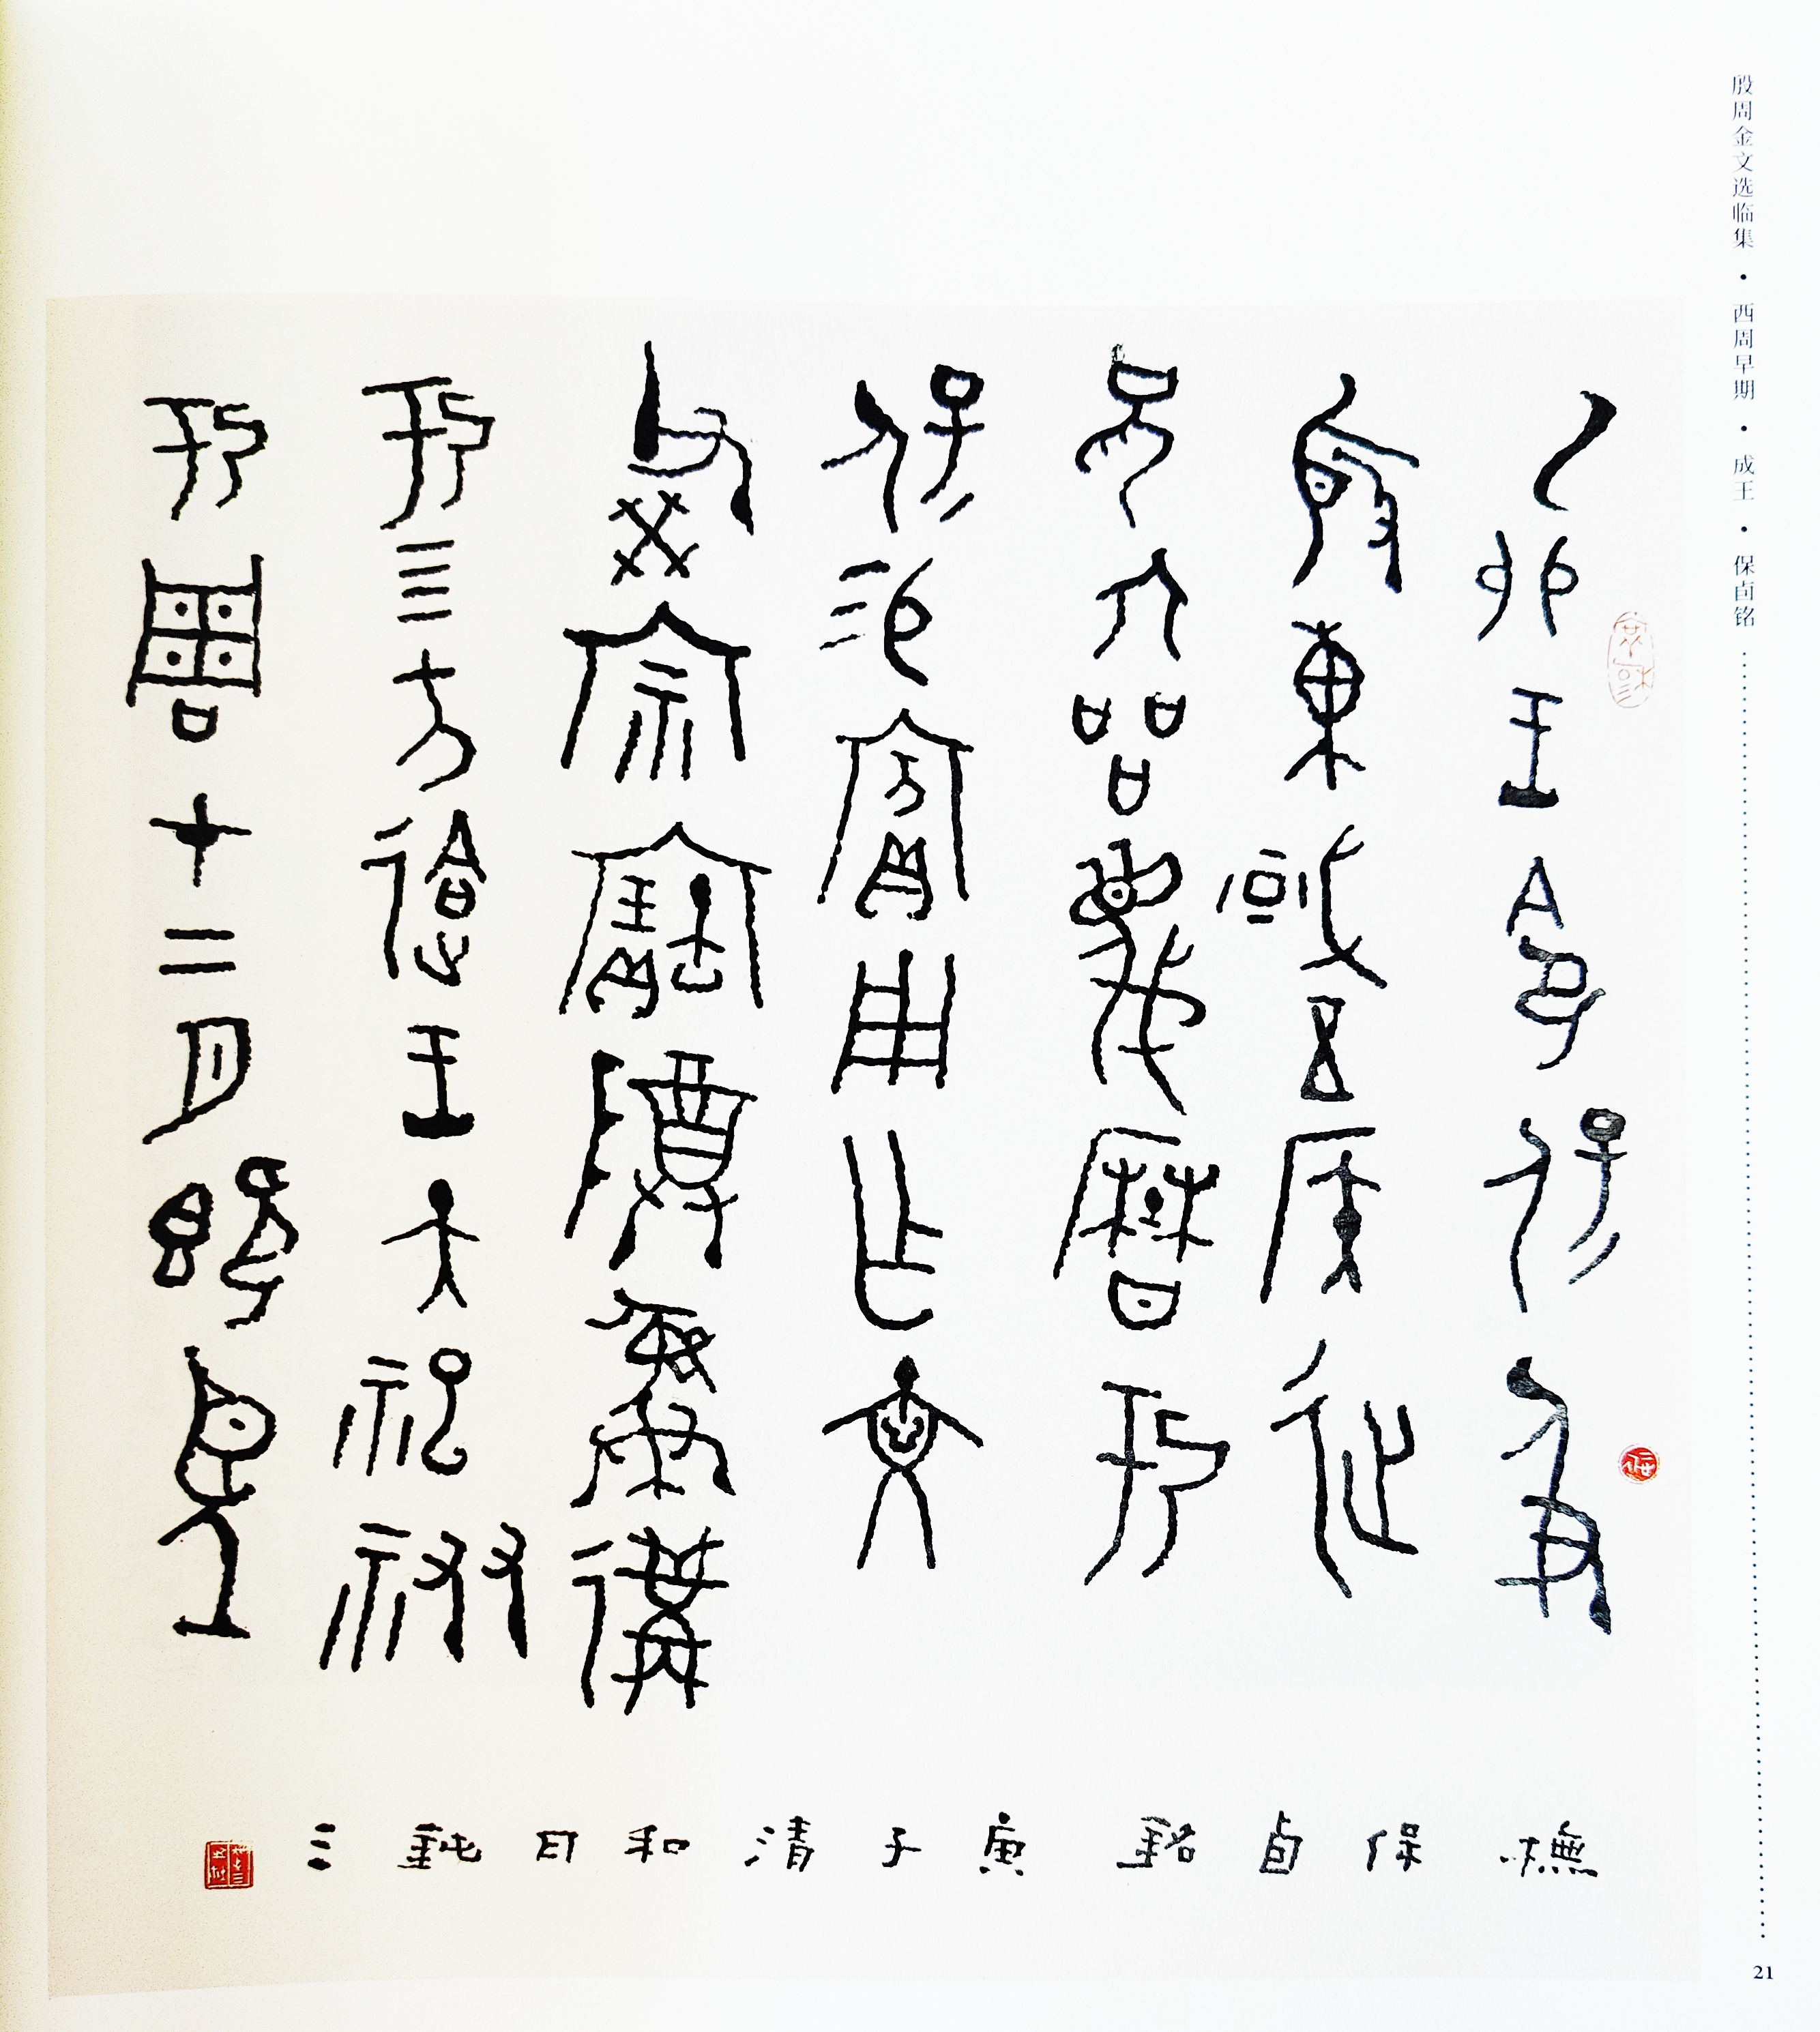 殷周金文选临集 · 西周早期 · 成王 · 保卣铭
乙卯王令保及
殷東或五侯征
兄六品蔑曆于
保易賓用乍文
父癸宗寶尊彝遘
于三方迨王大祀祓
于周十二月既望
橅保卣銘庚子清和日鈍三
21